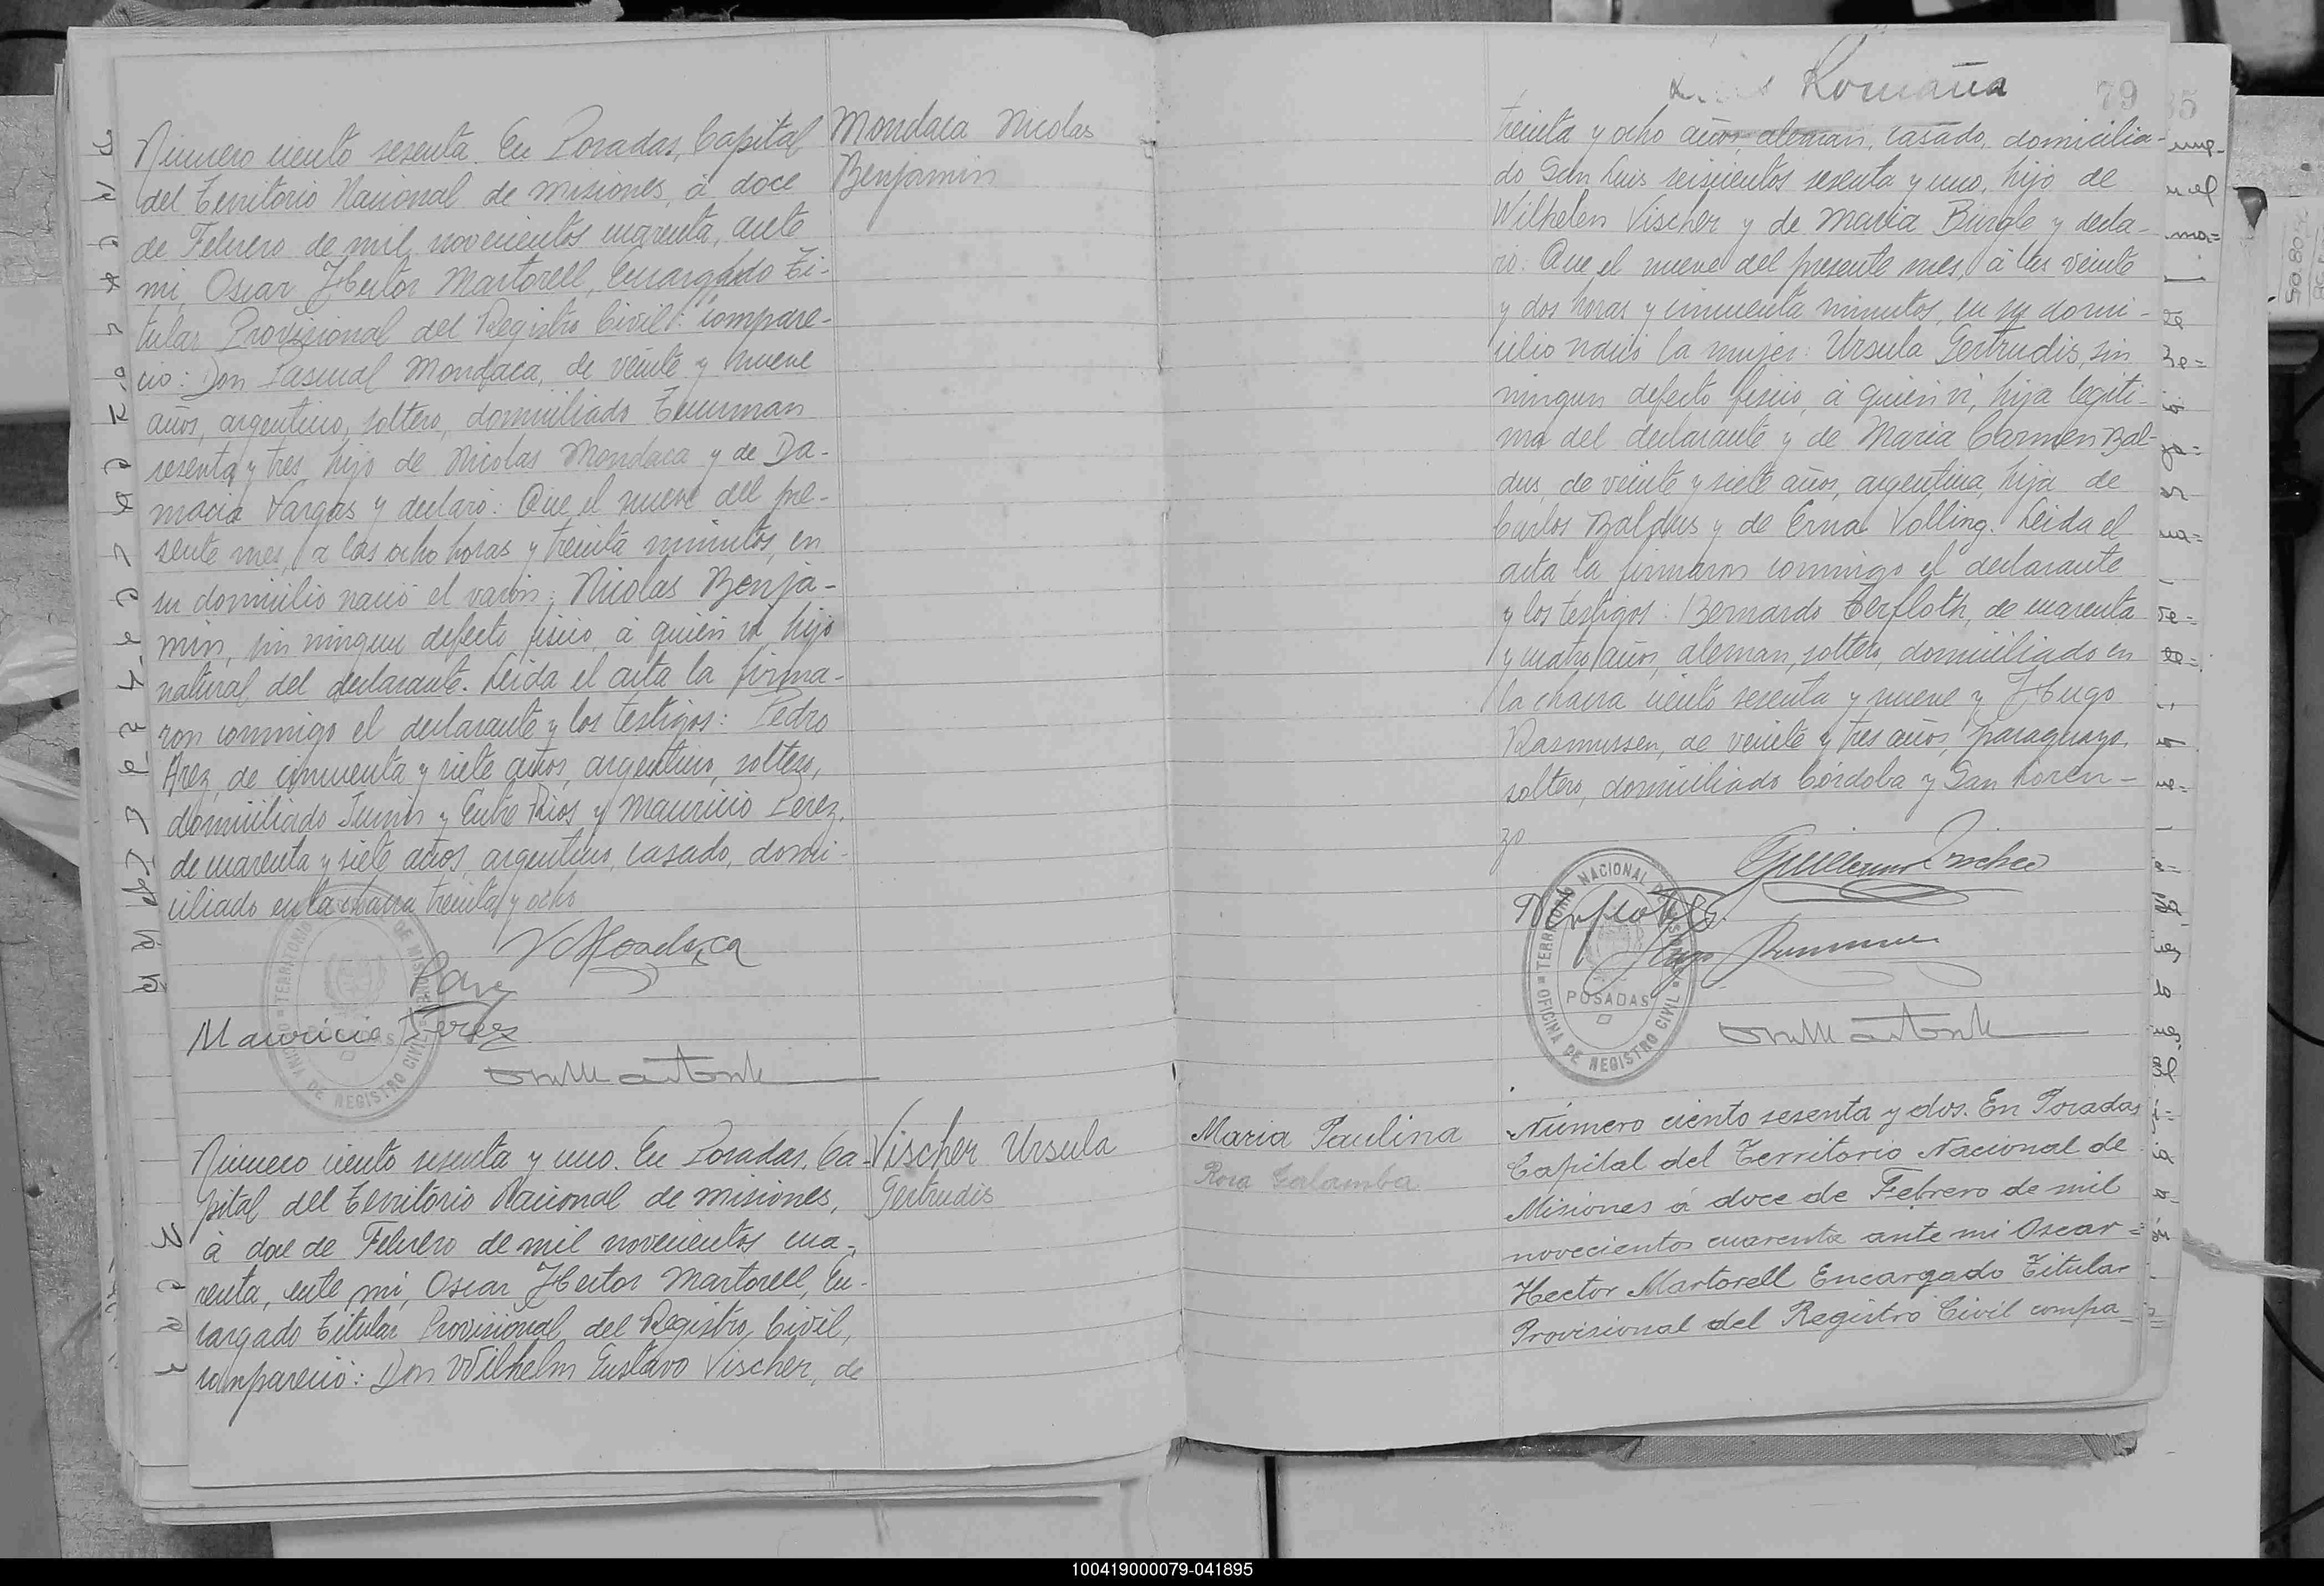 Número ciento sesenta. En Posadas, Capital
del Territorio Nacional de misiones, á doce
de Febrero de mil novecientos cuarenta, ante
mi, Oscar Hector Martorell, Encargado Ti-
tular Provisional del Registro Civil: compare-
ció: Don Pascual Mondaca, de veinte y nueve
años, argentino, soltero, domiciliado Tucuman
sesenta y tres, hijo de Nicolas Mondaca y de Da-
macia Vargas y declaró: Que el nueve del pre-
sente mes, a las ocho horas y treinta minutos, en
su domicilio nació el varón; Nicolas Benja-
min, sin ningun defecto fisico, á quién vi, hijo
natural del declarante. Leida el acta la firma-
ron conmigo el declarante y los testigos: Pedro
Arez, de cincuenta y siete años, argentino, soltero,
domiciliado Junin y Entre Rios y Mauricio Perez,
de cuarenta y siete años, argentino, casado, domi-
ciliado en la chacra treinta y ocho
Mondaca
Mauricio Perez
Mondaca Nicolas
Benjamin
Número ciento sesenta y uno. En Posadas, Ca-
pital del Territorio Nacional de misiones,
á doce de Febrero de mil novecientos cua-
renta, ante mi, Oscar Hector Martorell, En-
cargado Titular Provisional del Registro Civil,
compareció: Don Wilhelm Gustavo Vischer, de
Vischer Ursula
Gertrudis
Romaña
79
treinta y ocho años, aleman, casado, domicilia-
do San Luis seiscientos sesenta y uno, hijo de
Wilhelen Vischer y de Maria Burgle y decla-
ró: Que el nueve del presente mes, á las veinte
y dos horas y cincuenta minutos, en su domi-
cilio nació la mujer: Ursula Gertrudis, sin
ningun defecto fisico, á quién vi, hija legiti-
ma del declarante y de Maria Carmen Bal-
dus, de veinte y siete años, argentina, hija de
Carlos Baldus y de Erna Volling. Leida el
acta la firmaron conmigo el declarante
y los testigos: Bernardo Terfloth, de cuarenta
y cuatro años, aleman, soltero, domiciliado en
la chacra ciento sesenta y nueve y Hugo
Rasmussen, de veinte y tres años, paraguayo,
soltero, domiciliado Córdoba y San Loren-
zo
Guillermo Vischer
TERRITORIO NACIONAL DE MISIONES
POSADAS
OFICINA DE REGISTRO CIVIL
Maria Paulina
Rosa
Número ciento sesenta y dos. En Posadas
Capital del Territorio Nacional de
Misiones á doce de Febrero de mil
novecientos cuarenta ante mi Oscar
Hector Martorell Encargado Titular
Provisional del Registro Civil compa
100419000079-041895